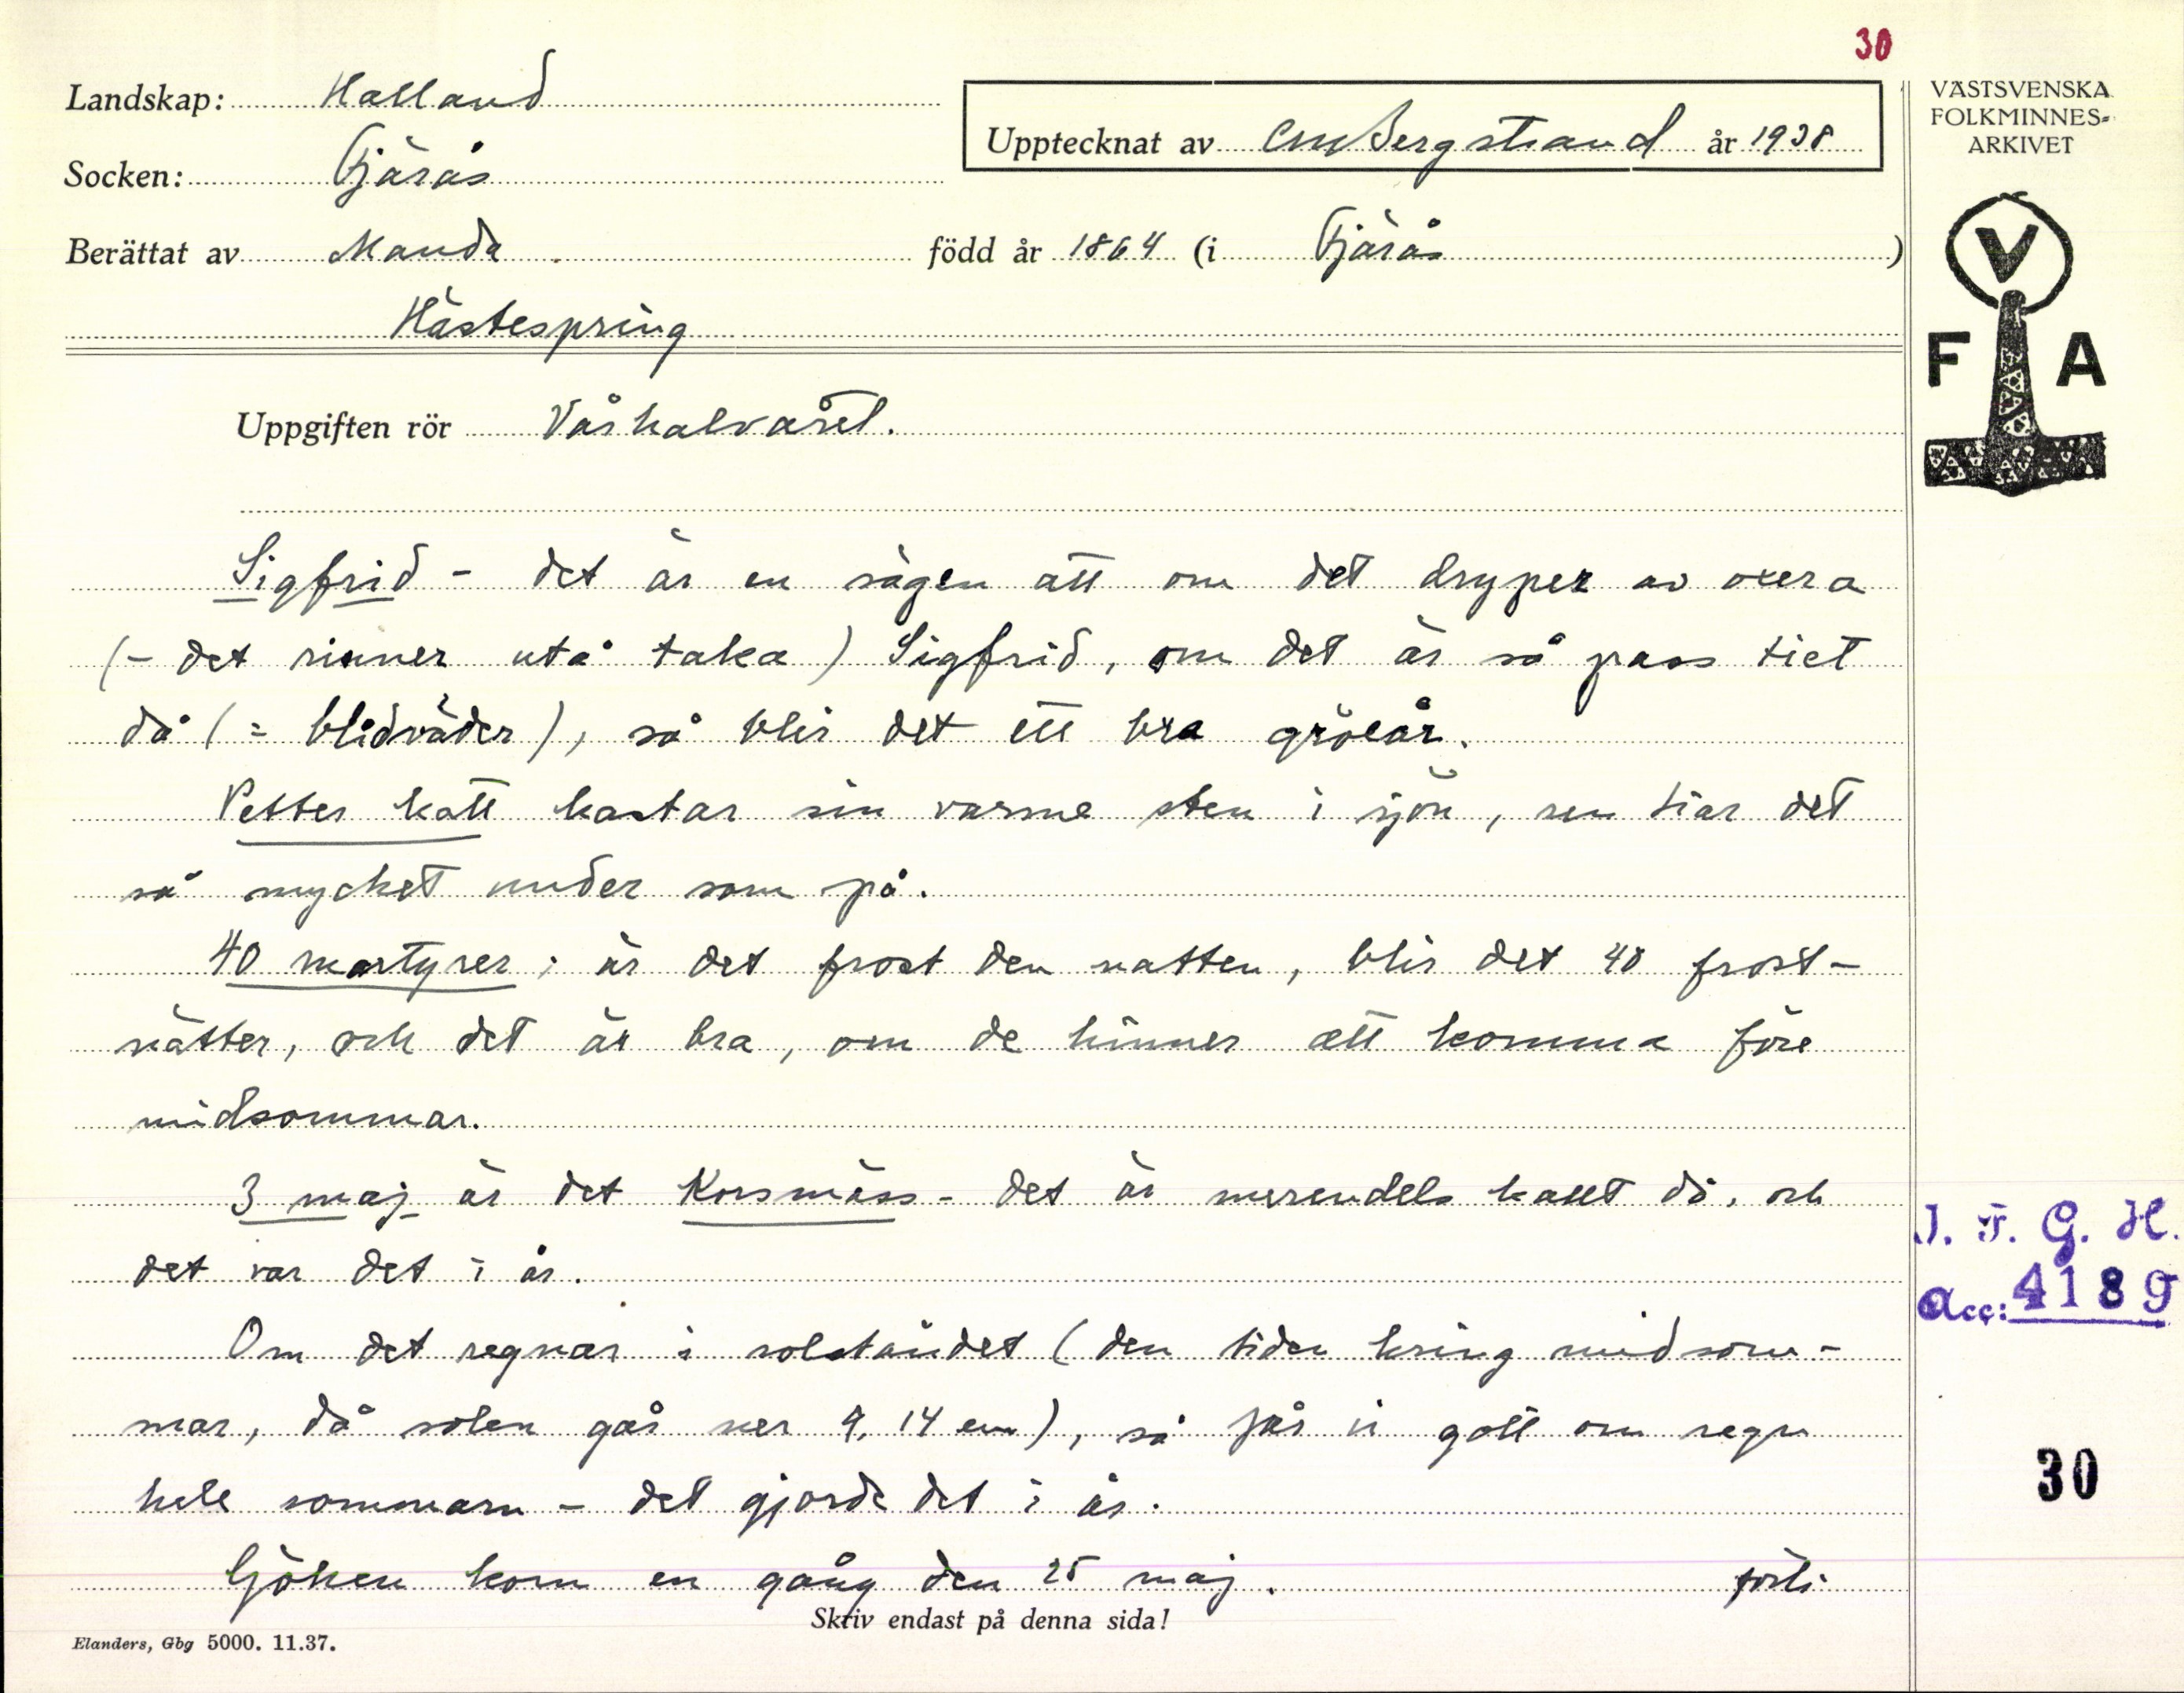 30
Landskap: Halland
Upptecknat av CM Bergstrand år 1938
VÄSTSVENSKA
FOLKMINNES=
ARKIVET
Socken: Fjärås
Berättat av Manda född år 1864 (i Fjärås)
Hästespring
V
F A
Uppgiften rör Vårhalvåret.
Sigfrid - det är en sägen att om det dryper av oxera
(- det rinner utå taka) Sigfrid, om det är så pass tiet
då (= blidväder), så blir det ett bra gröeår.
Petter katt kastar sin varme sten i sjön, sen tiar det
så mycket under som på.
40 martyrer; är det frost den natten, blir det 40 frost-
nätter, och det är bra, om de hinner att komma före
midsommar.
3 maj är det Korsmäss - det är merendels kallt då, och
det var det i år.
J. F. G. H.
Acc: 4189
Om det regnar i solståndet (den tiden kring midsom-
mar, då solen går ner 9,14 em), så får vi gott om regn
hele sommarn - det gjorde det i år.
30
Göken kom en gång den 25 maj. forts.
Skriv endast på denna sida!
Elanders, Gbg 5000. 11.37.